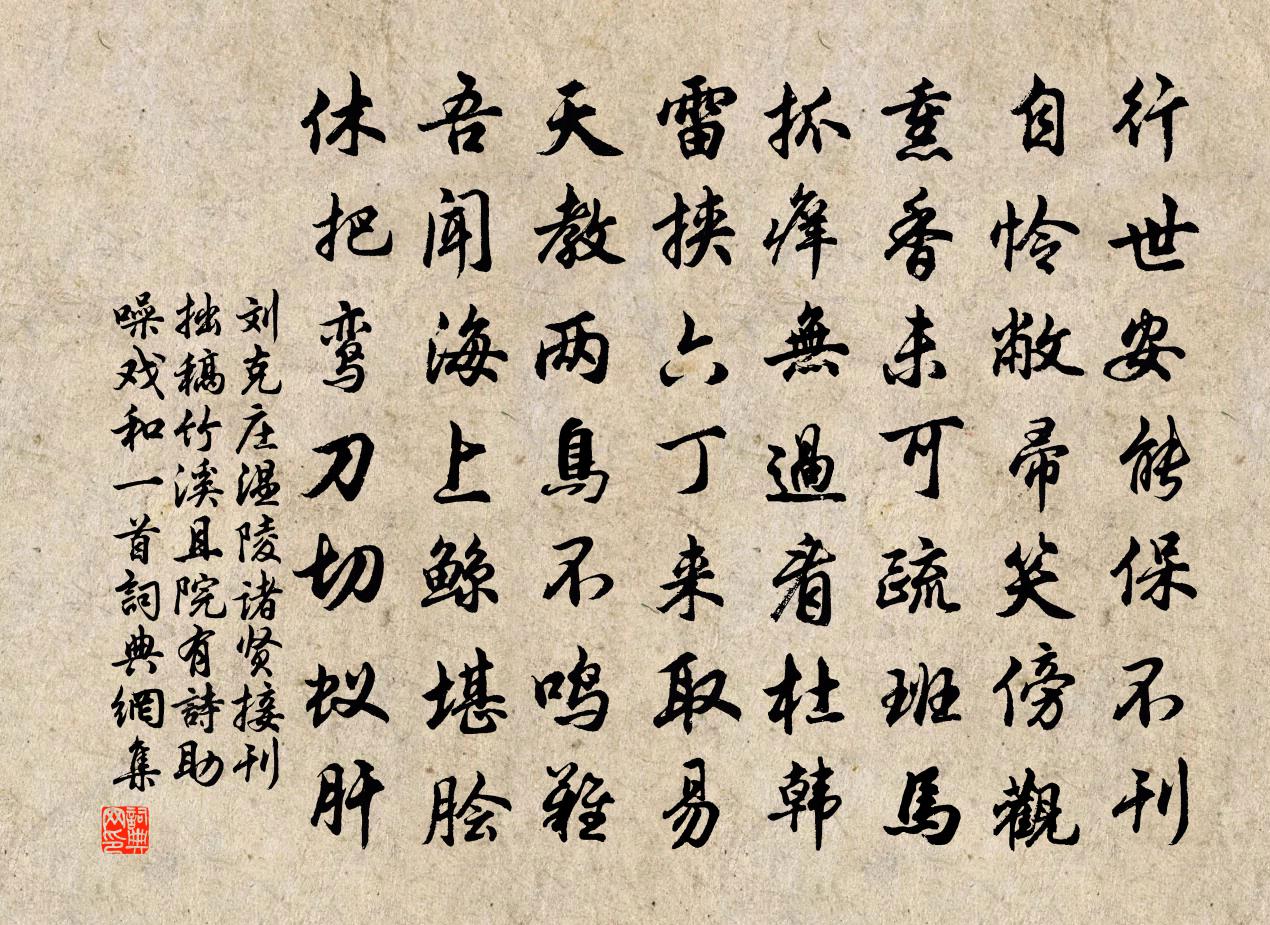 行世安能保不刊
自怜敝帚笑傍觀
熏香未可疏班馬
抓痒無過看杜韩
雷挟六丁来取易
天教两鳥不鸣難
吾闻海上鲸堪脍
休把鸾刀切蚁肝
刘克庄温陵诸贤接刊
拙稿竹溪且院有詩助
噪戏和一首詞典網集
詞典网印